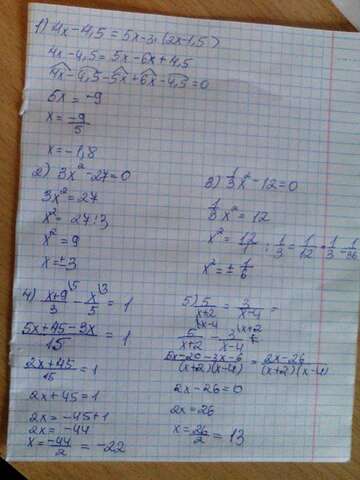 1) 4x-4,5=5x-3·(2x-1,5)
4x-4,5=5x-6x+4,5
4x-4,5-5x+6x-4,5=0
5x=-9
x=-9/5
x=-1,8
2) 3x²-27=0
3x²=27
x²=27:3
x²=9
x=±3
3) 1/3x²-12=0
1/3x²=12
x²=12/1:1/3=1/12·1/3=1/36
x²=±1/6
4) x+9/3\5-x/5\3=1
5x+45-3x/15=1
2x+45/15=1
2x+45=1
2x=-45+1
2x=-44
x=-44/2=-22
5) 5/x+2\x-4=3/x-4\x+2=
5/x+2-3/x-4=
5x-20-3x-6/(x+2)(x-4)=2x-26/(x+2)(x-4)
2x-26=0
2x=26
x=26/2=13